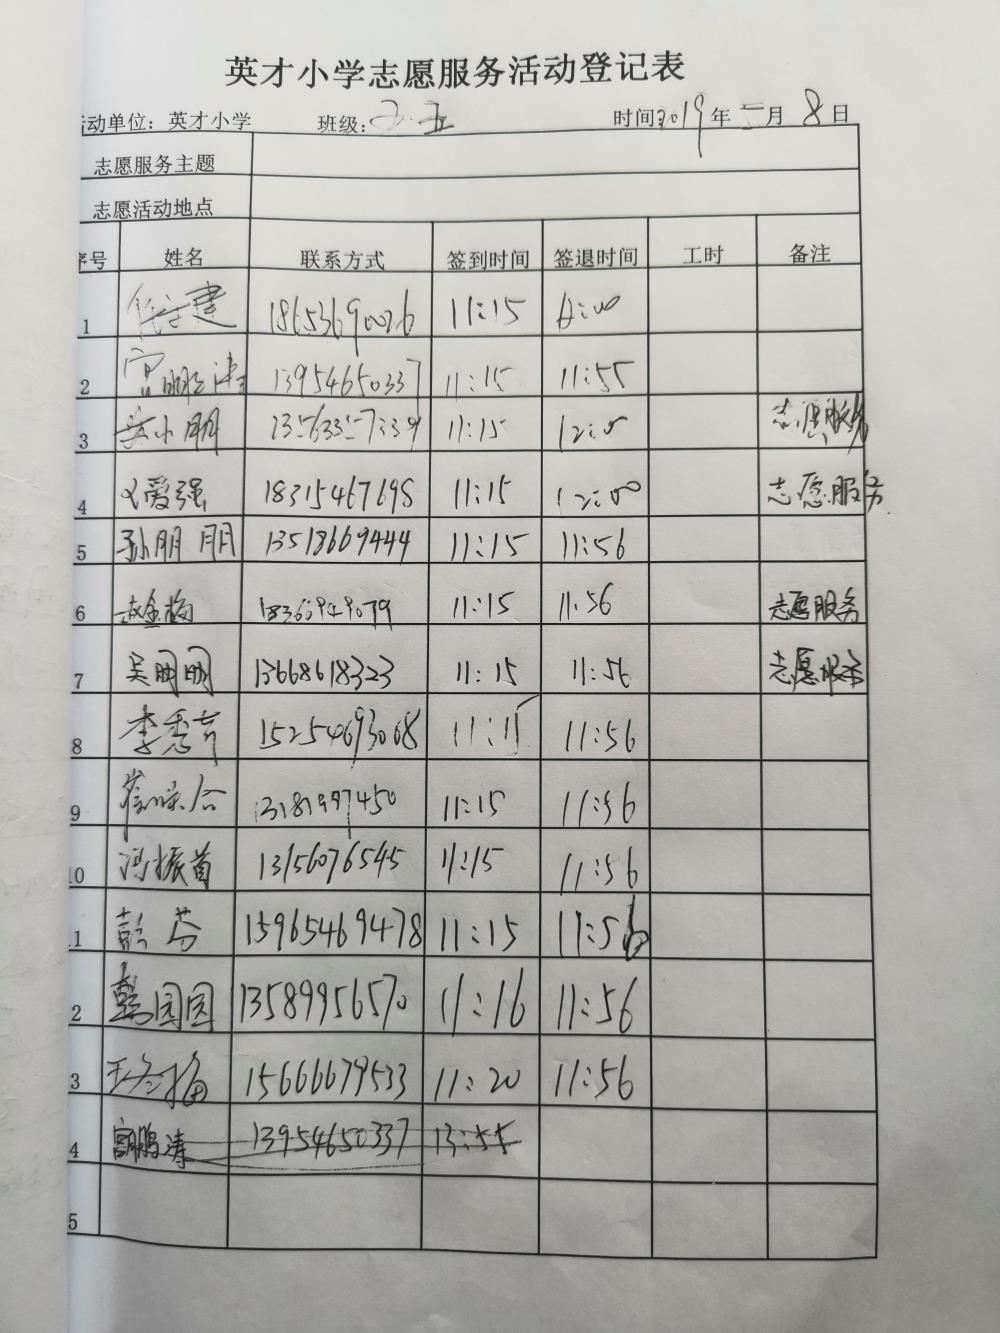 英才小学志愿服务活动登记表
活动单位：英才小学 班级：二.五 时间2019年 月8日
志愿服务主题
志愿活动地点
序号 姓名 联系方式 签到时间 签退时间 工时 备注
1 建 18653690026 11:15 :00
2 宫鹏涛 13954650337 11:15 11:55
3 小朋 11:15 12:00 志愿服务
4 爱强 18315467698 11:15 12:00 志愿服务
5 孙朋朋 13518669444 11:15 11:56
6 赵金梅 11:15 11:56 志愿服务
7 吴明明 13668618323 11:15 11:56 志愿服务
8 李秀芹 15254693068 11:15 11:56
9 13181997450 11:15 11:56
10 冯振首 13156076545 11:15 11:56
1 彭芬 15965469478 11:15 11:56
2 韩园园 13589956570 11:16 11:56
3 王 梅 15666679533 11:20 11:56
4 宫鹏涛 13954650337 13:55
5